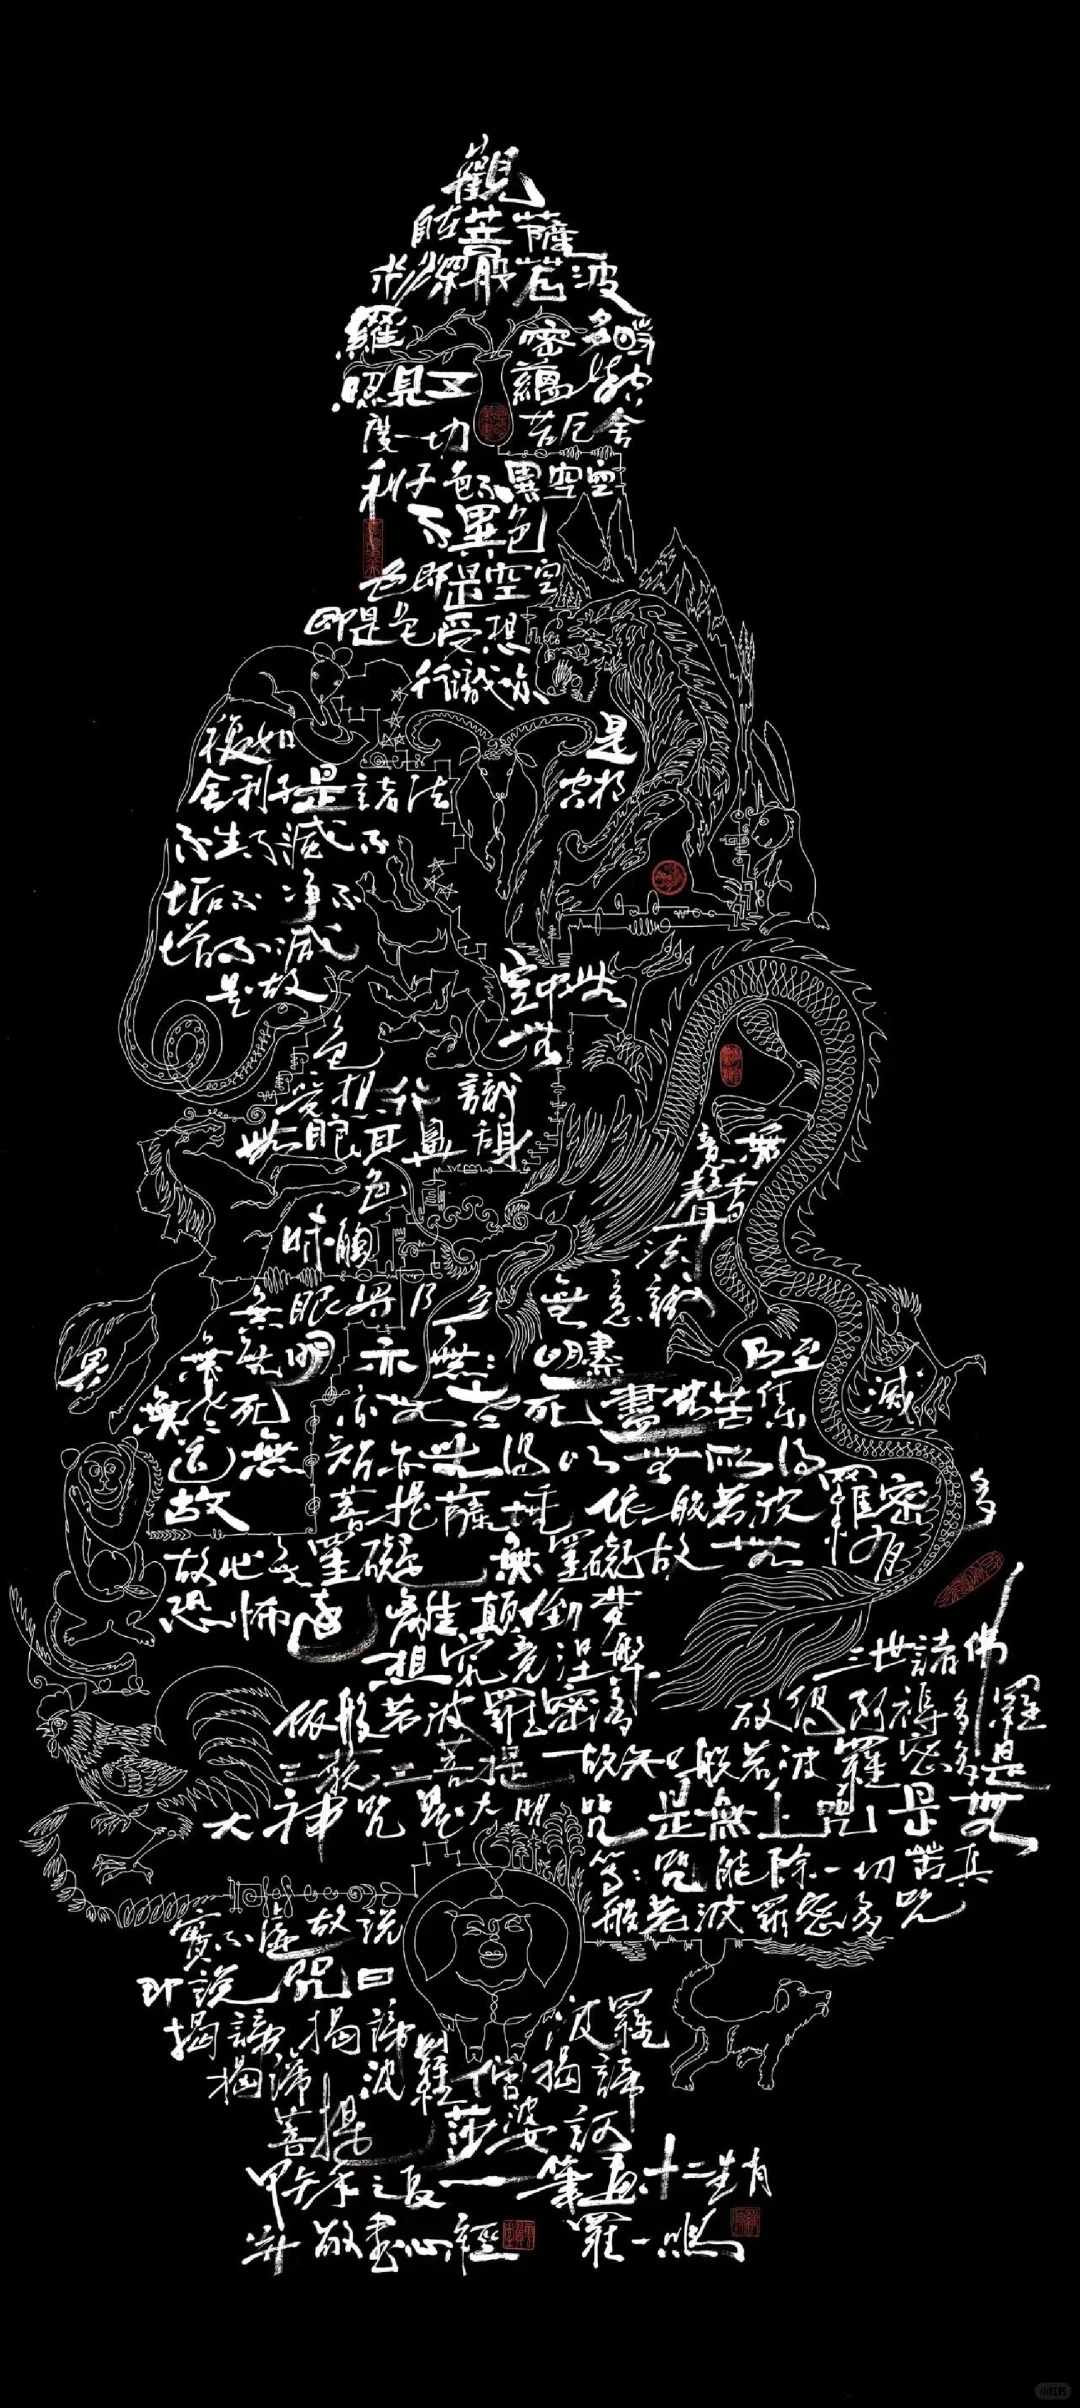 觀
自在菩薩
行深般若波
羅 密多時
照見五 蘊皆空
度一切 苦厄舍
利子色不異空空
不異色
色即是空空
即是色受想
行識亦
復如 是
舍利子是諸法 空相
不生不滅不
垢不淨不
增不減
是故 空中無
色 無
受想行識
無眼耳鼻舌身 意無
色 聲香
味觸 法
無眼界乃至無意識
界 無無明亦無無明盡 乃至
無老死 亦無老死盡無苦集 滅
道無智亦無得以無所得
故 菩提薩埵依般若波羅密多
故心無罣礙無罣礙故無有
恐怖遠離顛倒夢
想究竟涅槃 三世諸佛
依般若波羅密多 故得阿耨多羅
三藐三菩提 故知般若波羅密多是
大神咒是大明咒是無上咒是無
等等咒能除一切苦真
實不虛故說 般若波羅密多咒
即說咒曰
揭諦揭諦 波羅
揭諦 波羅僧揭諦
菩提 莎婆訶
甲午年之夏一筆畫十二生肖
并敬書心經 羅一鳴
小红书